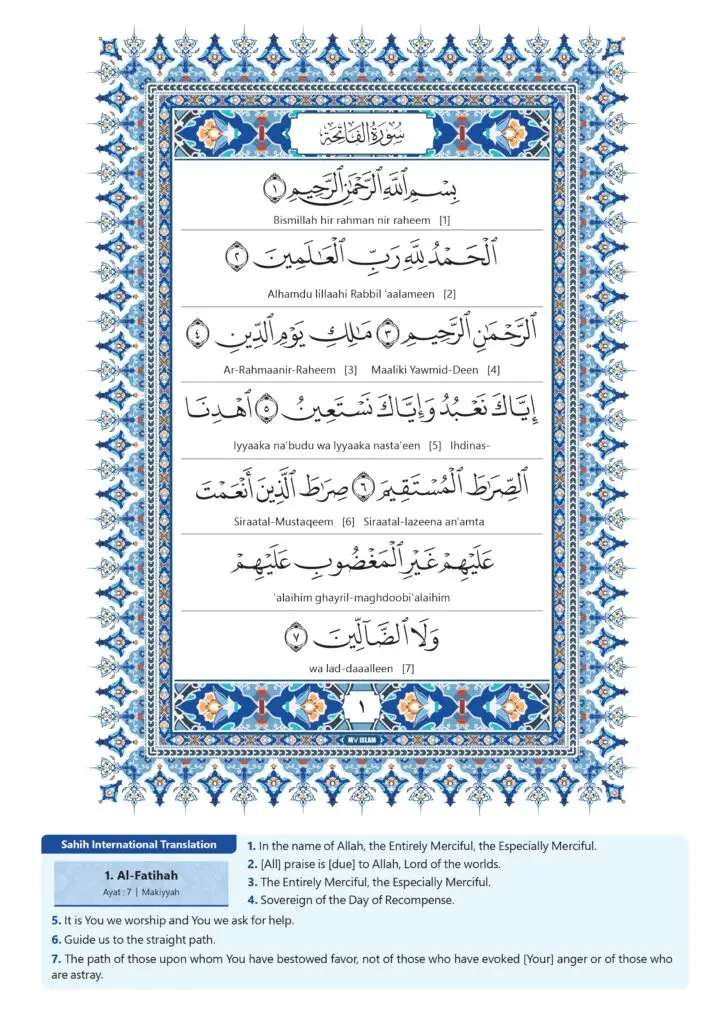 سُورَةُ الْفَاتِحَةِ
بِسْمِ ٱللَّهِ ٱلرَّحْمَٰنِ ٱلرَّحِيمِ ١
Bismillah hir rahman nir raheem [1]
ٱلْحَمْدُ لِلَّهِ رَبِّ ٱلْعَٰلَمِينَ ٢
Alhamdu lillaahi Rabbil ‘aalameen [2]
ٱلرَّحْمَٰنِ ٱلرَّحِيمِ ٣ مَٰلِكِ يَوْمِ ٱلدِّينِ ٤
Ar-Rahmaanir-Raheem [3] Maaliki Yawmid-Deen [4]
إِيَّاكَ نَعْبُدُ وَإِيَّاكَ نَسْتَعِينُ ٥ ٱهْدِنَا
Iyyaaka na'budu wa lyyaaka nasta'een [5] Ihdinas-
ٱلصِّرَٰطَ ٱلْمُسْتَقِيمَ ٦ صِرَٰطَ ٱلَّذِينَ أَنْعَمْتَ
Siraatal-Mustaqeem [6] Siraatal-lazeena an'amta
عَلَيْهِمْ غَيْرِ ٱلْمَغْضُوبِ عَلَيْهِمْ
'alaihim ghayril-maghdoobi'alaihim
وَلَا ٱلضَّآلِّينَ ٧
wa lad-daaalleen [7]
١
MV ISLAM
Sahih International Translation
1. Al-Fatihah
Ayat : 7 | Makiyyah
1. In the name of Allah, the Entirely Merciful, the Especially Merciful.
2. [All] praise is [due] to Allah, Lord of the worlds.
3. The Entirely Merciful, the Especially Merciful.
4. Sovereign of the Day of Recompense.
5. It is You we worship and You we ask for help.
6. Guide us to the straight path.
7. The path of those upon whom You have bestowed favor, not of those who have evoked [Your] anger or of those who
are astray.